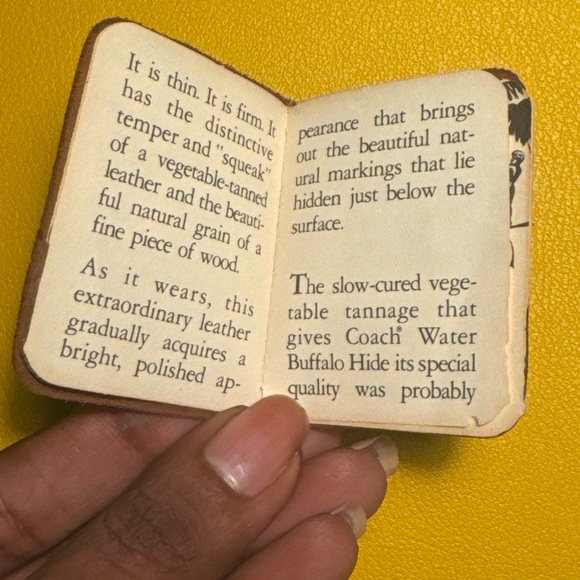 It is thin. It is firm. It
has the distinctive
temper and "squeak"
of a vegetable-tanned
leather and the beauti-
ful natural grain of a
fine piece of wood.
As it wears, this
extraordinary leather
gradually acquires a
bright, polished ap-
pearance that brings
out the beautiful nat-
ural markings that lie
hidden just below the
surface.
The slow-cured vege-
table tannage that
gives Coach® Water
Buffalo Hide its special
quality was probably